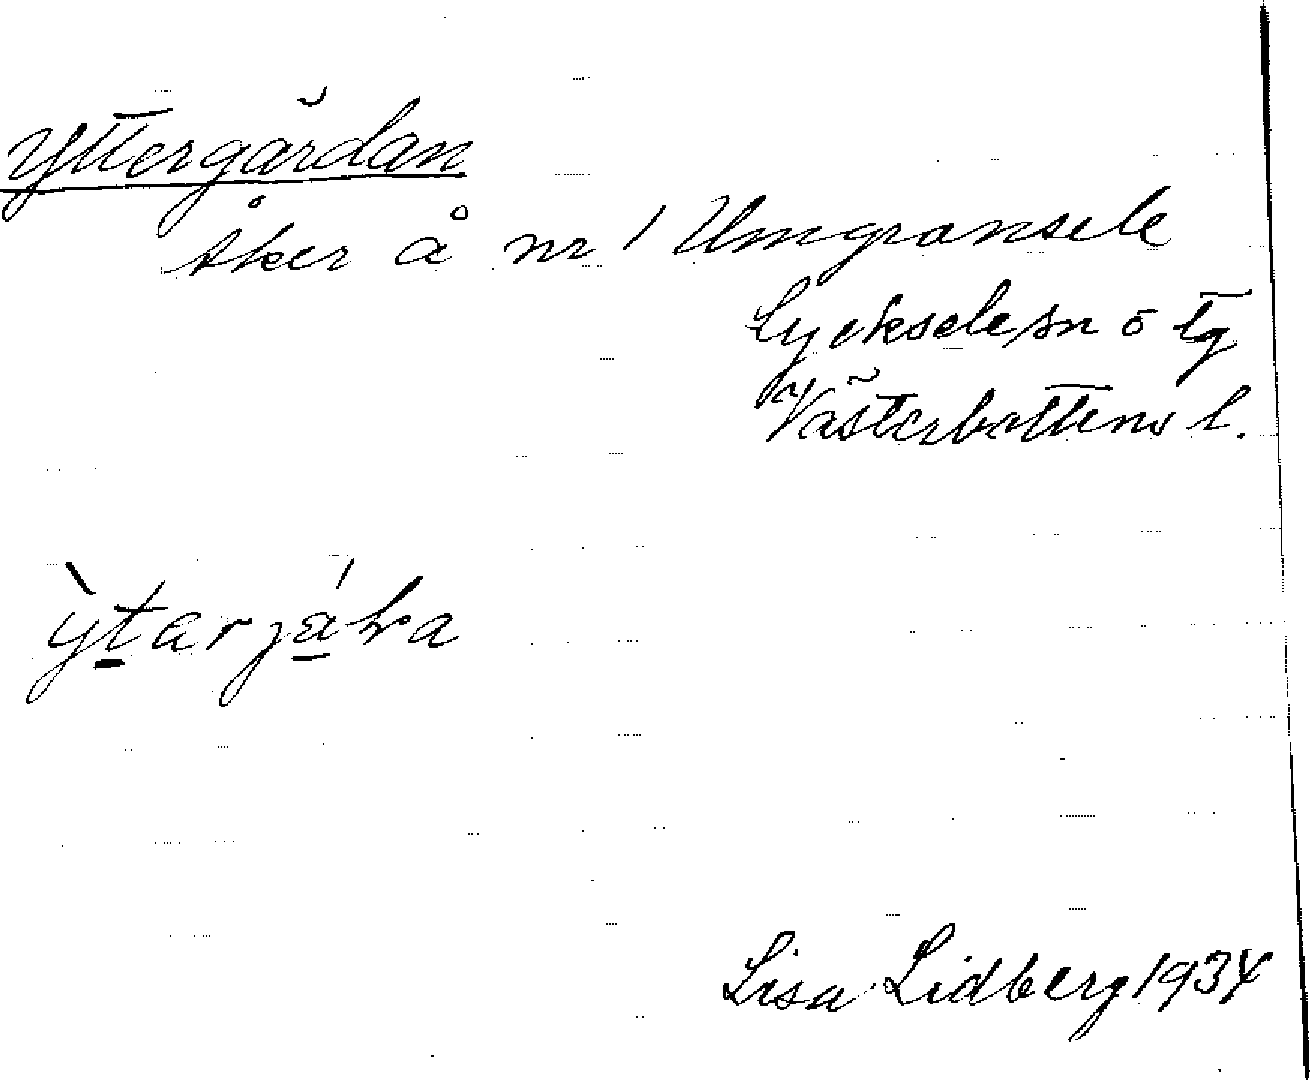 Yttergärdan
Åker å nr 1 Umgransele
Lycksele sn o tg
Västerbottens l.
Lisa Lidberg 1934